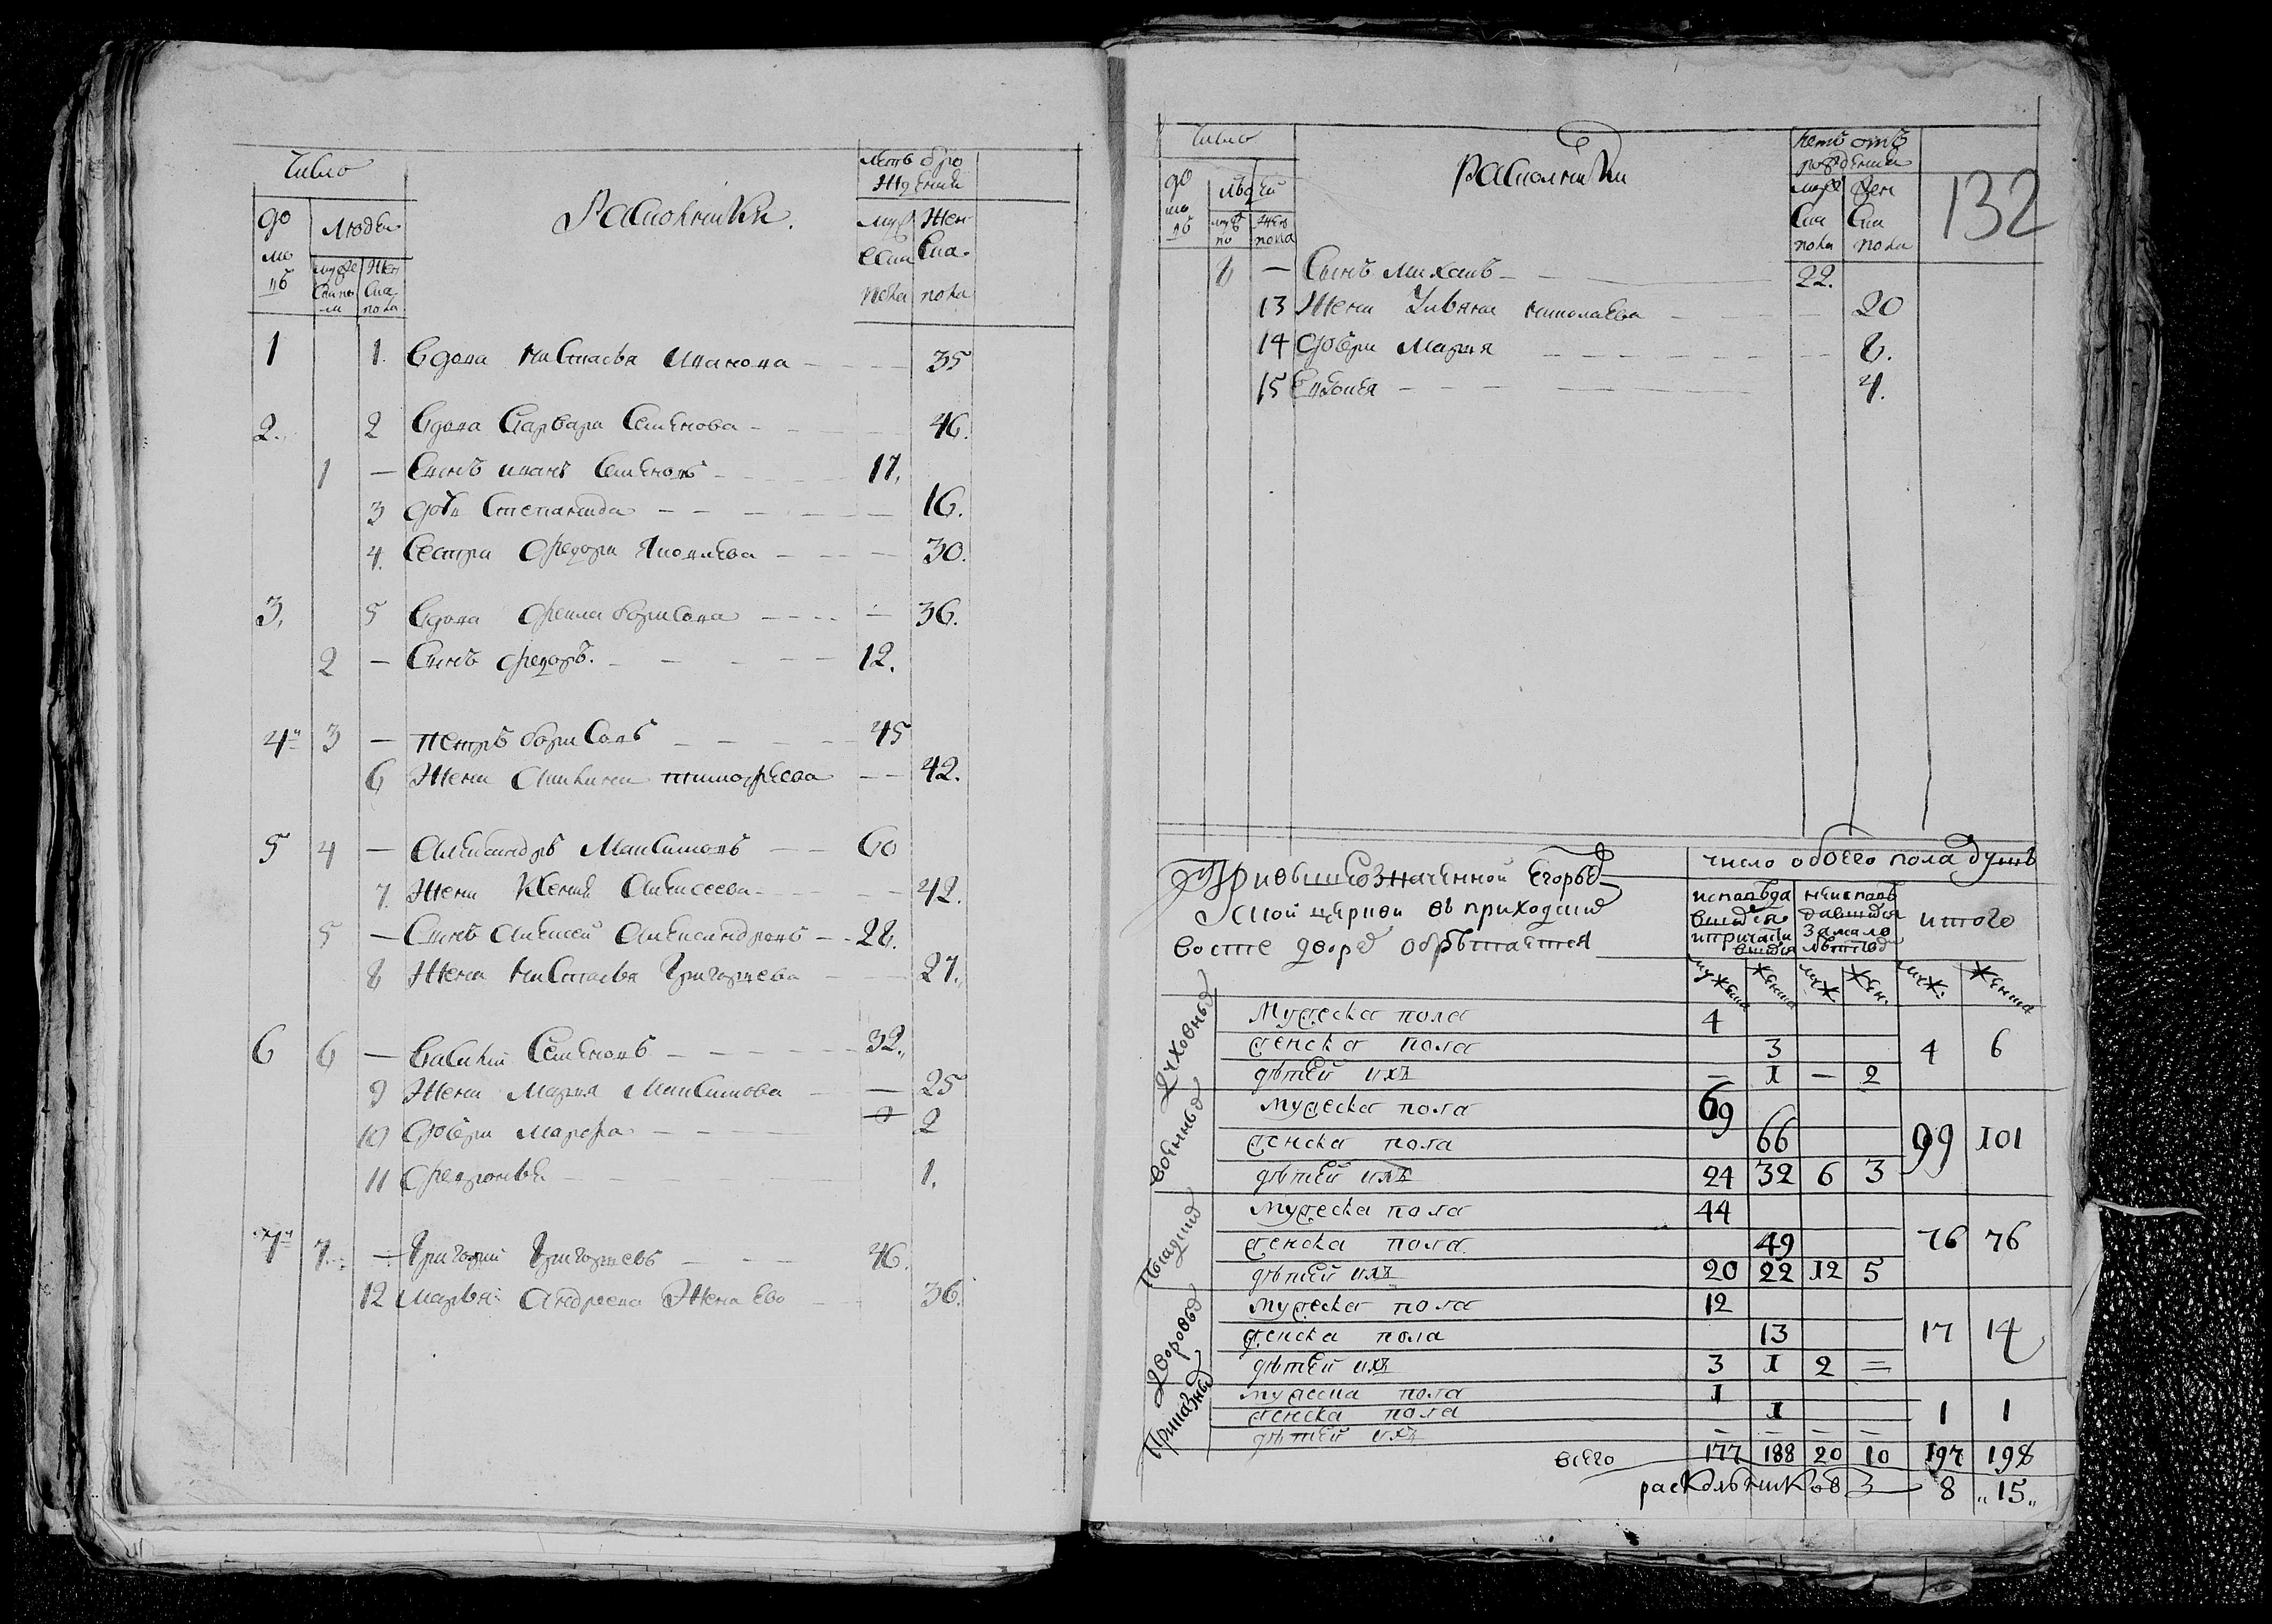 Число
Раскольники.
летъ отро
жденiя
до
мо
въ
Людей
муже
ска по
ла
Жен
ска
пола
муж
ска
пола
Жен
ска
пола
1 1. вдова настасья Иванова 35
2. 2 вдова варвара Семенова 46.
1 — Сынъ иванъ Семеновъ 17.
3 дочь степанида 16.
4. Сестра федора Яковлева 30.
3. 5 вдова фекла борисова 36.
2 — Сынъ федоръ. 12.
4 3 — петръ борисовъ 45
6 Жена Акилина тимофеева 42.
5 4 — Александръ Максимовъ 60
7. Жена Ксенiя Алексеева 42.
5 — Сынъ Алексей Александровъ 28.
8 Жена настасья григорьева 27.
6 6 — василий Семеновъ 32.
9 Жена Марья Максимова 25
10 дочери марфа 2
11 федронья 1.
7 7. — григорий григорьевъ 46.
12 марья Андреева Жена ево 36.
Число
Раскольники
летъ отъ
рожденiя
132
до
мо
въ
людей
муж
по
жен
пола
муже
ска
пола
жен
ска
пола
8 — Сынъ михаилъ 22.
13 Жена Ульяна николаева 20
14 дочери Марья 8.
15 4.
При вышеозначенной Егорьев
ской церкви въ приходцких
число обоего пола душъ
исповѣда
вшихся
и причасти
вшихся
неисповѣ
давшихся
за мало
лѣтство
итого
мужеска женска муж. жен. муж. женска
Духовныя
Мужеска пола 4
женска пола 3 4 6
дѣтей ихъ — 1 — 2
военныя
мужеска пола 69
женска пола 66 99 101
дѣтей ихъ 24 32 6 3
мужеска пола 44
женска пола 49 76 76
дѣтей ихъ 20 22 12 5
Дворовыя
мужеска пола 12
женска пола 13 17 14
дѣтей ихъ 3 1 2 =
Приказныя
мужеска пола 1
женска пола 1 1 1
дѣтей ихъ — — — —
всего 177 188 20 10 197 198
раскольниковъ 8 „15„